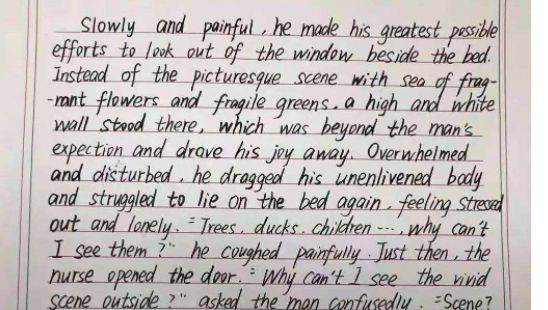 Slowly and painful, he made his greatest possible
efforts to look out of the window beside the bed.
Instead of the picturesque scene with sea of frag-
-rant flowers and fragile greens, a high and white
wall stood there, which was beyond the man's
expection and drove his joy away. Overwhelmed
and disturbed, he dragged his unenlivened body
and struggled to lie on the bed again, feeling stressed
out and lonely. "Trees, ducks, children ---, why can't
I see them?" he coughed painfully. Just then, the
nurse opened the door. "Why can't I see the vivid
scene outside?" asked the man confusedly. "Scene?